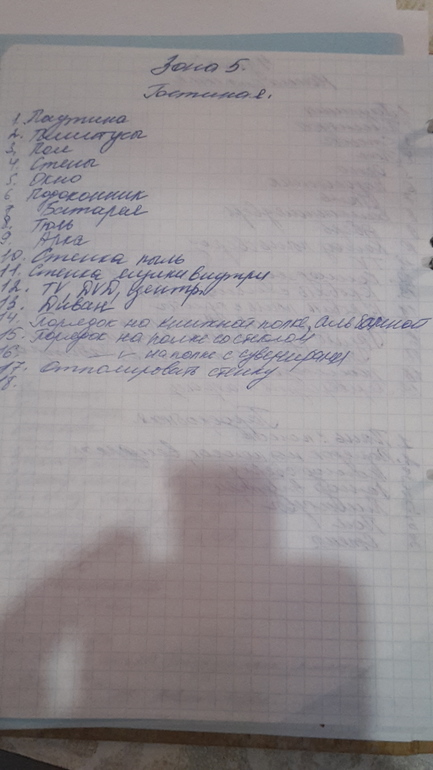 Зона 5.
Гостиная.
1. Паутина
2. Плинтусы
3. Пол
4. Стены
5. Окно
6. Подоконник
7. Батарея
8. Тюль
9. Арка
10. Стенка пыль
11. Стенка внутри
12. TV, DVD, центр
13. Диван
14. Порядок на книжной полке, альбомной
15. Порядок на полке со стеклом
16. —〃— на полке с сувенирами
17. Отполировать стенку
18.